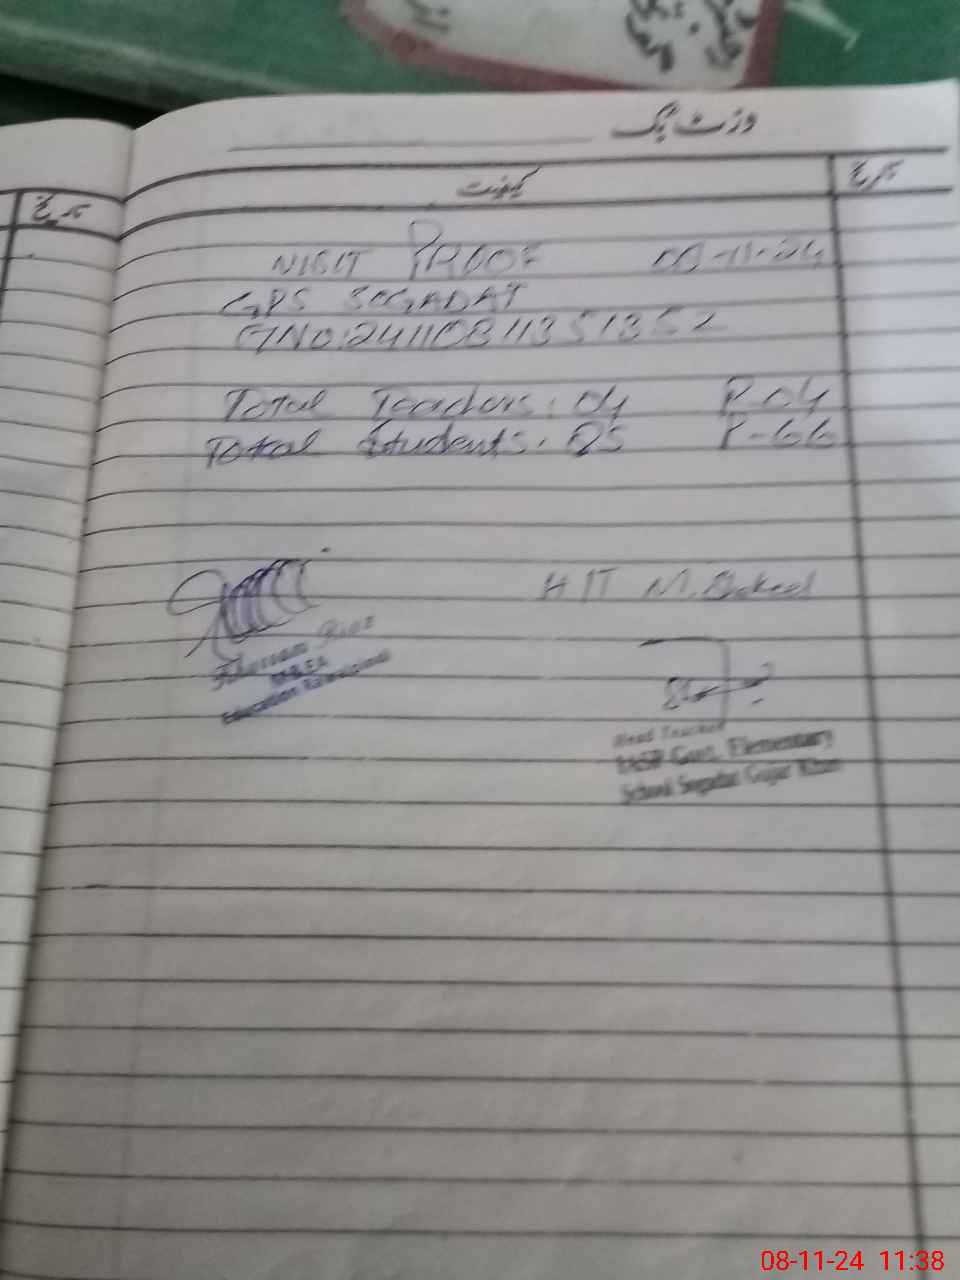 وزٹ بک
تاریخ
کیفیت
تاریخ
VISIT PROOF 08-11-24
GPS SOGADAT
Total Teachers: 04 P-04
Total Students: 85 P-66
H/T M.
Education Rawalpindi
Head Teacher
Govt. Elementary
School Sogadat Gujar Khan
08-11-24 11:38